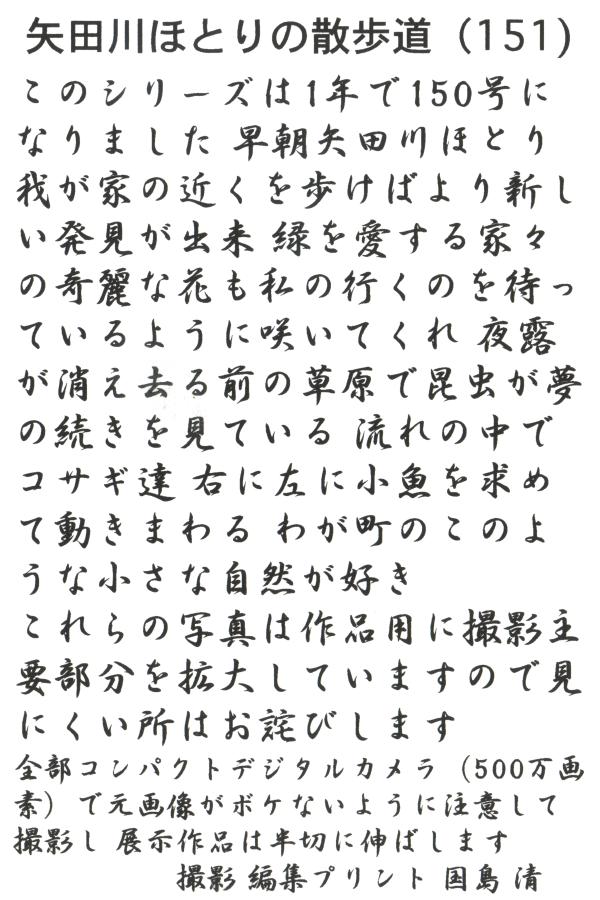 矢田川ほとりの散歩道（151）
このシリーズは1年で150号に
なりました 早朝矢田川ほとり
我が家の近くを歩けばより新し
い発見が出来 緑を愛する家々
の奇麗な花も私の行くのを待っ
ているように咲いてくれ 夜露
が消え去る前の草原で昆虫が夢
の続きを見ている 流れの中で
コサギ達 右に左に小魚を求め
て動きまわる わが町のこのよ
うな小さな自然が好き
これらの写真は作品用に撮影主
要部分を拡大していますので見
にくい所はお詫びします
全部コンパクトデジタルカメラ（500万画
素）で元画像がボケないように注意して
撮影し 展示作品は半切に伸ばします
撮影 編集プリント 国島 清